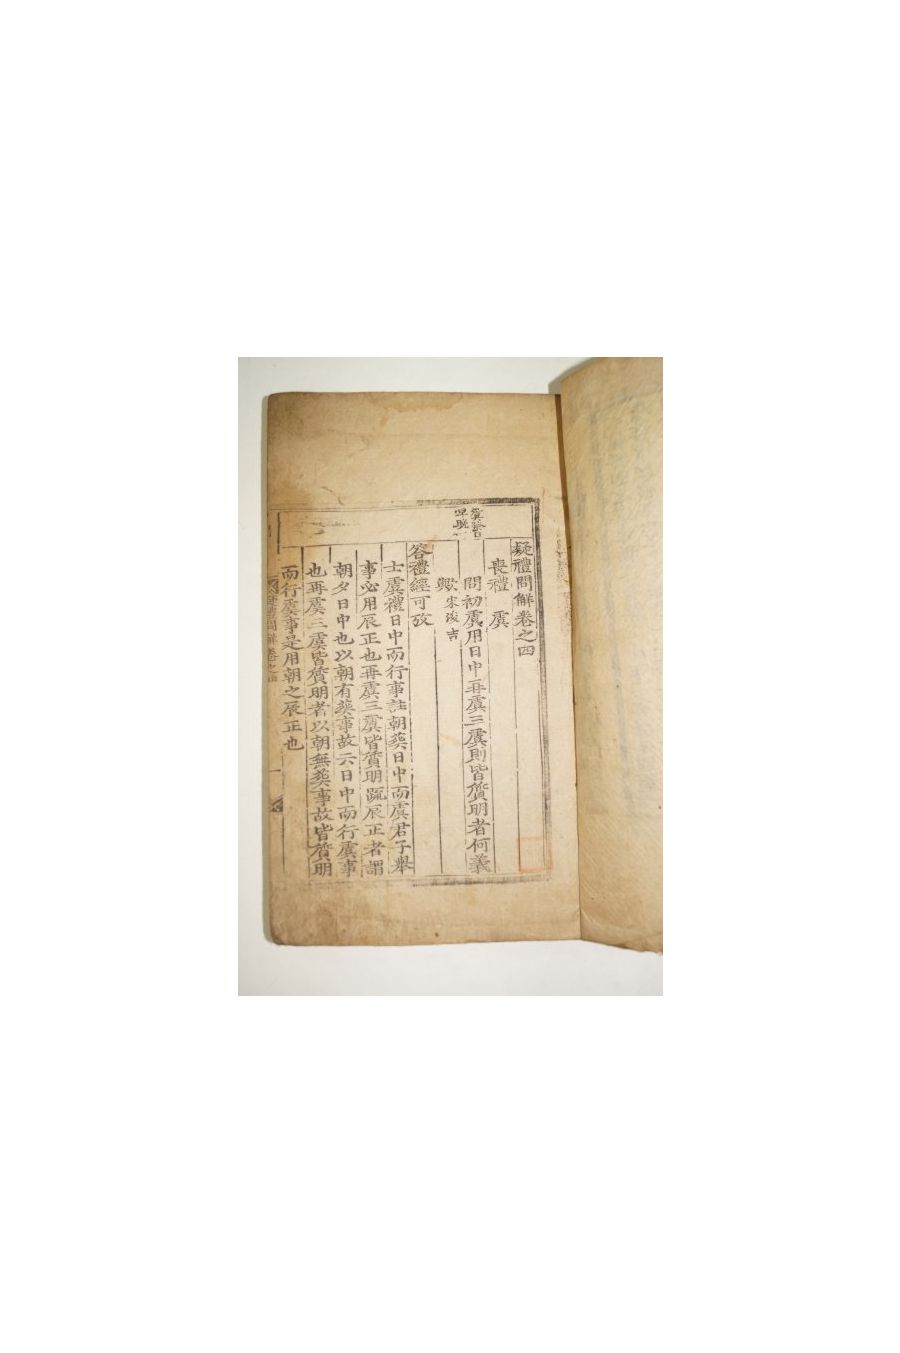 疑禮問解卷之四
喪禮 虞
虞祭
早晩
問初虞用日中再虞三虞則皆質明者何義
歟宋浚吉
答禮經可攷
士虞禮日中而行事註朝葬日中而虞君子擧
事必用辰正也再虞三虞皆質明疏辰正者謂
朝夕日中也以朝有葬事故云日中而行虞事
也再虞三虞皆質明者以朝無葬事故皆質明
而行虞事是用朝之辰正也
疑禮問解卷之四